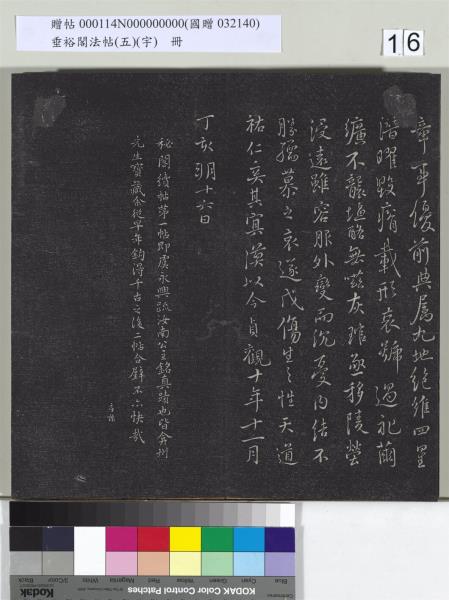 贈帖 000114N000000000(國贈 032140)
垂裕閣法帖(五)(宇) 冊
16
章事優前典屬九地絕維四星
潛曜毀瘠載形哀號過禮繭
纊不襲塩酪無嗞灰琯亟移陵塋
浸遠雖容服外變而沉憂內結不
勝孺慕之哀遂成傷生之性天道
祐仁奚其冥漠以今貞觀十年十一月
丁亥朔十六日
秘閣續帖第一帖即虞永興疏汝南公主銘真蹟也皆弇州
先生寶藏余從早年鉤得千古之後二帖合璧不亦快哉
Blue
Cyan
Green
Yellow
Red
Magenta
White
3/Color
Black
Kodak
KODAK Color Control Patches